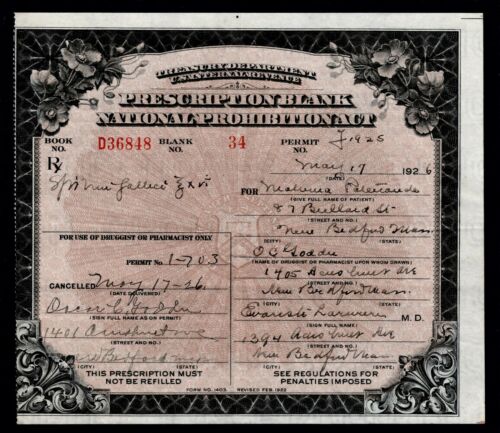 TREASURY DEPARTMENT
U.S. INTERNAL REVENUE
PRESCRIPTION BLANK
NATIONAL PROHIBITION ACT
BOOK NO. D36848 BLANK NO. 34 PERMIT NO. J.1925
℞
May 17 1926
(DATE)
Spi Vini Gallici ℥xvi
FOR
(GIVE FULL NAME OF PATIENT)
87 Bullard St
(STREET AND NO.)
New Bedford Mass
(CITY) (STATE)
FOR USE OF DRUGGIST OR PHARMACIST ONLY
PERMIT NO. 1-703
(NAME OF DRUGGIST OR PHARMACIST UPON WHOM DRAWN)
1405 Acushnet Ave
(STREET AND NO.)
CANCELLED May 17-26
(DATE DELIVERED)
New Bedford Mass.
(CITY) (STATE)
Oscar
(SIGN FULL NAME AS ON PERMIT)
M. D.
(SIGN FULL NAME)
Acushnet Ave
(STREET AND NO.)
1394 Acushnet Ave
(STREET AND NO.)
New Bedford Mass
(CITY) (STATE)
New Bedford Mass
(CITY) (STATE)
THIS PRESCRIPTION MUST
NOT BE REFILLED
FORM NO. 1403 REVISED FEB. 1922
SEE REGULATIONS FOR
PENALTIES IMPOSED